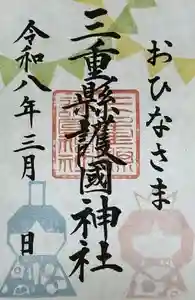 おひなさま
三重縣護國神社
令和八年三月 日